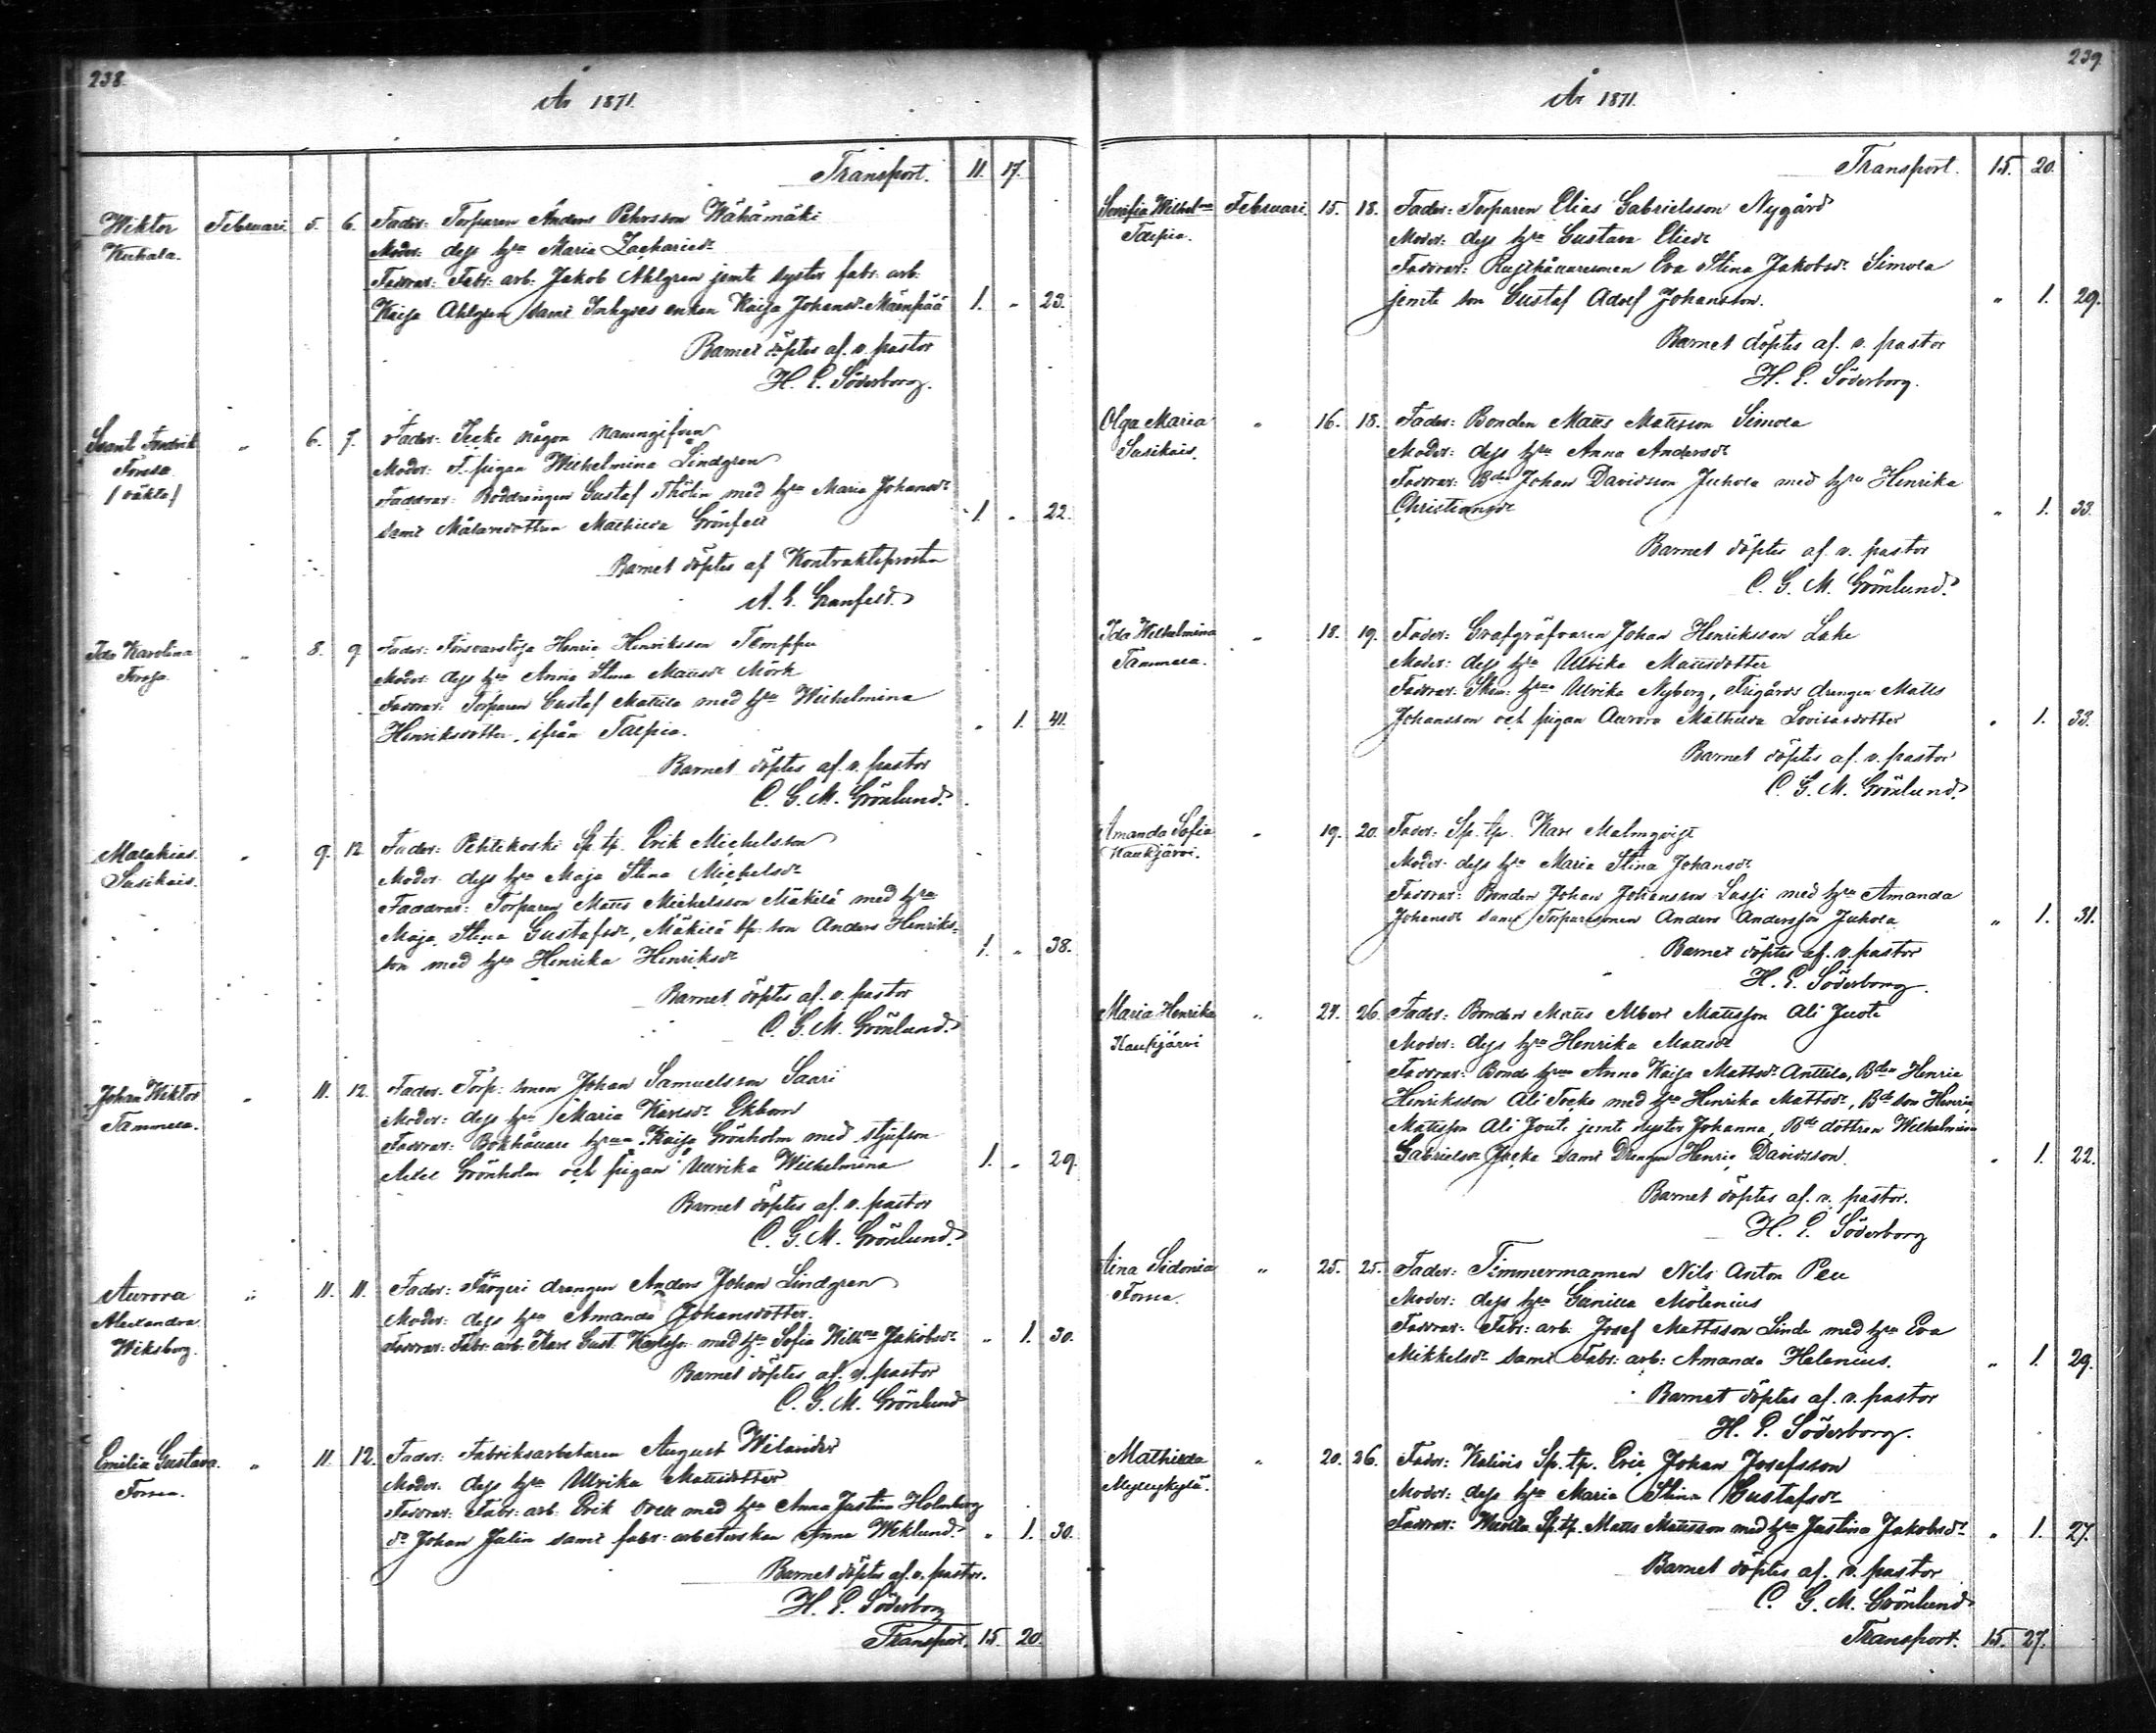 238
År 1871.
Transport. 11. 17.
Wiktor Februari 5. 6. Fader: Torparen Anders Pehrsson Wähämäki
Kuhala. Moder: dess h:u Maria Zachariedr
Faddrar: Fabr: arb: Jakob Ahlgren jemte syster fabr: arb:
Kaisa Ahlgren samt Inhyses enkan Kaisa Johansdr 1. " 23.
Barnet döptes af v. pastor
H. E. Söderborg.
Svant Fredrik " 6. 7. Fader: Icke någon namngifven
Forssa Moder: F. pigan Wilhelmina Lindgren
/oäkta/ Faddrar: Boddrängen Gustaf Thölin med h:u Maria Johansdr
samt Målaredottren Mathilda Grönfelt 1. " 22.
Barnet döptes af Kontraktsprosten
A. E. Granfelt.
Ida Karolina " 8. 9. Fader: Försvarslöse Henric Henriksson Temppu
Forssa. Moder: dess h:u Anna Stina Mattsdr Mörk
Faddrar: Torparen Gustaf Mattila med h:u Wilhelmina
Henriksdotter, ifrån Talpia. " 1. 41.
Barnet döptes af v. pastor
C. G. M. Grönlund.
Malakias " 9. 12. Fader: Pehtikoski Sp. tp. Erik Michelsson
Susikais. Moder: dess h:u Maja Stina Michelsdr
Faddrar: Torparen Matts Michelsson Mäkilä med h:u
Maja Stina Gustafsdr, Mäkilä tp: son Anders Henriks-
son med h:u Henrika Henriksdr 1. " 38.
Barnet döptes af v. pastor
C. G. M. Grönlund.
Johan Wiktor " 11. 12. Fader: Torp: sonen Johan Samuelsson Saari
Tammela. Moder: dess h:u Maria Karlsdr Ekbom
Faddrar: Bokhållare h:un Kaisa Grönholm med styfson
Axel Grönholm och pigan Ullrika Wilhelmina 1. " 29.
Barnet döptes af v. pastor
C. G. M. Grönlund.
Aurora " 11. 11. Fader: Färgeri drängen Anders Johan Lindgren
Alexandra Moder: dess h:u Amanda Johansdotter.
Wiksberg. Faddrar: Fabr: arb: Karl Gust. Karlsson med h:u Sofia Wilh:na Jakobsdr " 1. 30.
Barnet döptes af v. pastor
C. G. M. Grönlund
Emilia Gustava " 11. 12. Fader: Fabriksarbetaren August Wilander
Forssa. Moder: dess h:u Ullrika Mattsdotter
Faddrar: Fabr: arb: Erik Orell med h:u Anna Justina Holmberg
do Johan Julin samt fabr: arbeterskan Anna Weklund. " 1. 30.
Barnet döptes af v. pastor.
H. E. Söderborg
Transport. 15. 20.
239
År 1871.
Transport. 15. 20.
Serafia Wilhel:na Februari 15. 18. Fader: Torparen Elias Gabrielsson Nygård
Talpia. Moder: dess h:u Gustava Eliedr
Faddrar: Rusthållaresonen Eva Stina Jakobsdr Simola
jemte son Gustaf Adolf Johansson. " 1. 29.
Barnet döptes af v. pastor
H. E. Söderborg.
Olga Maria " 16. 18. Fader: Bonden Matts Mattsson Simola
Susikais. Moder: dess h:u Anna Andersdr
Faddrar: B:den Johan Davidsson Juhola med h:u Henrika
Christiansdr " 1. 33.
Barnet döptes af v. pastor
C. G. M. Grönlund.
Ida Wilhelmina " 18. 19. Fader: Grafgräfvaren Johan Henriksson Lake
Tammela. Moder: dess h:u Ullrika Mattsdotter
Faddrar: h:un Ulrika Nyberg, drängen Matts
Johansson och pigan Aurora Mathilda Lovisasdotter " 1. 33.
Barnet döptes af v. pastor
C. G. M. Grönlund.
Amanda Sofia " 19. 20. Fader: Sp. tp. Karl Malmqvist
Kaukjärvi. Moder: dess h:u Maria Stina Johansdr
Faddrar: Bonden Johan Johansson Lassi med h:u Amanda
Johansdr samt Torparesonen Anders Andersson Juhola " 1. 31.
Barnet döptes af v. pastor
H. E. Söderborg.
Maria Henrika " 24. 26. Fader: Bonden Matts Albert Mattsson Ali Juoti
Kaukjärvi Moder: dess h:u Henrika Mattsdr
Faddrar: Bonde h:un Anna Kaisa Mattsdr Anttila, B:den Henric
Henriksson Ali med h:u Henrika Mattsdr, B:de son Henric
Mattsson Ali Jouti jemte syster Johanna, B:de dottren Wilhelmina
Gabrielsdr samt Drängen Henric Davidsson. " 1. 22.
Barnet döptes af v. pastor.
H. E. Söderborg
Aina Sidonia " 25. 25. Fader: Timmermannen Nils Anton Pell
Forssa. Moder: dess h:u Gunilla Molenius
Faddrar: Fabr: arb: Josef Mattsson Linde med h:u Eva
Mikkelsdr samt Fabr: arb: Amanda Helenius. " 1. 29.
Barnet döptes af v. pastor
H. E. Söderborg.
Mathilda " 20. 26. Fader: Sp. tp. Eric Johan Josefsson
Myllykylä. Moder: dess h:u Maria Stina Gustafsdr
Faddrar: Sp. tp. Matts Mattsson med h:u Justina Jakobsdr " 1. 27.
Barnet döptes af v. pastor
C. G. M. Grönlund
Transport. 15. 27.